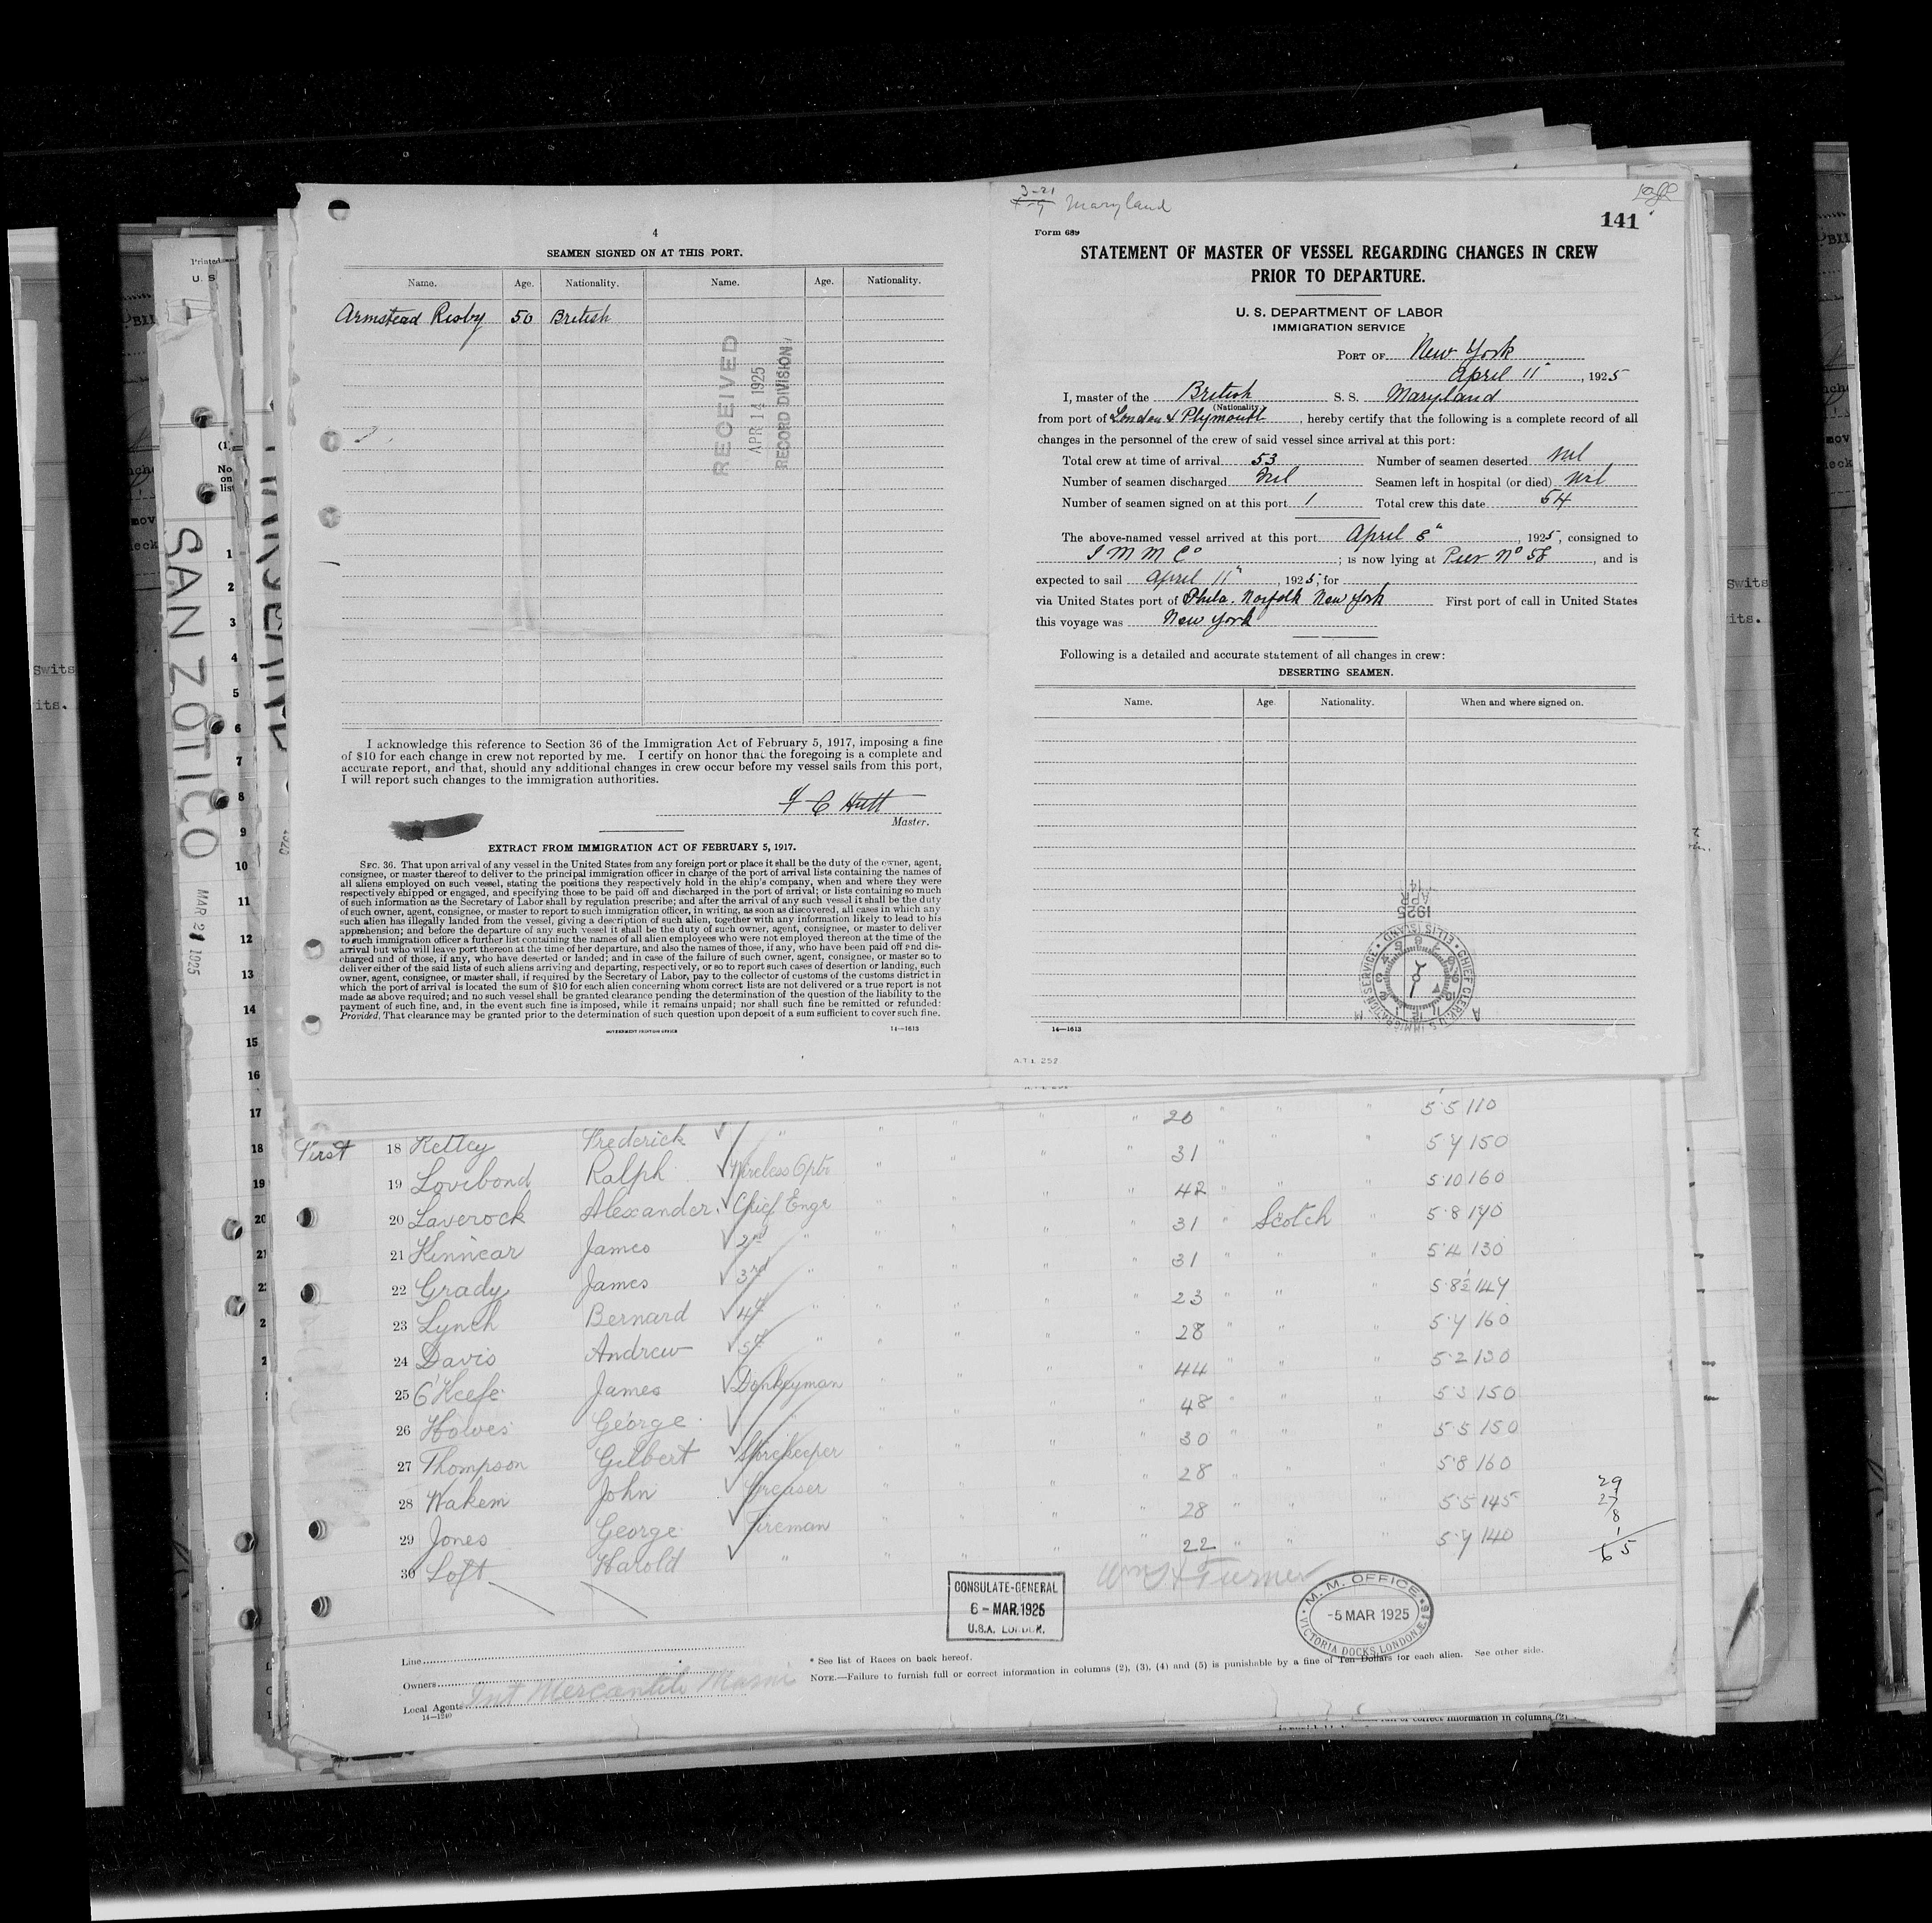 4
SEAMEN SIGNED ON AT THIS PORT.
Name. Age. Nationality. Name. Age. Nationality.
Armstead Risby 50 British
RECEIVED
APR 14 1925
RECORD DIVISION
I acknowledge this reference to Section 36 of the Immigration Act of February 5, 1917, imposing a fine
of $10 for each change in crew not reported by me. I certify on honor that the foregoing is a complete and
accurate report, and that, should any additional changes in crew occur before my vessel sails from this port,
I will report such changes to the immigration authorities.
F C Hutt
Master.
EXTRACT FROM IMMIGRATION ACT OF FEBRUARY 5, 1917.
SEC. 36. That upon arrival of any vessel in the United States from any foreign port or place it shall be the duty of the owner, agent,
consignee, or master thereof to deliver to the principal immigration officer in charge of the port of arrival lists containing the names of
all aliens employed on such vessel, stating the positions they respectively hold in the ship's company, when and where they were
respectively shipped or engaged, and specifying those to be paid off and discharged in the port of arrival; or lists containing so much
of such information as the Secretary of Labor shall by regulation prescribe; and after the arrival of any such vessel it shall be the duty
of such owner, agent, consignee, or master to report to such immigration officer, in writing, as soon as discovered, all cases in which any
such alien has illegally landed from the vessel, giving a description of such alien, together with any information likely to lead to his
apprehension; and before the departure of any such vessel it shall be the duty of such owner, agent, consignee, or master to deliver
to such immigration officer a further list containing the names of all alien employees who were not employed thereon at the time of the
arrival but who will leave port thereon at the time of her departure, and also the names of those, if any, who have been paid off and dis-
charged and of those, if any, who have deserted or landed; and in case of the failure of such owner, agent, consignee, or master so to
deliver either of the said lists of such aliens arriving and departing, respectively, or so to report such cases of desertion or landing, such
owner, agent, consignee, or master shall, if required by the Secretary of Labor, pay to the collector of customs of the customs district in
which the port of arrival is located the sum of $10 for each alien concerning whom correct lists are not delivered or a true report is not
made as above required; and no such vessel shall be granted clearance pending the determination of the question of the liability to the
payment of such fine, and, in the event such fine is imposed, while it remains unpaid; nor shall such fine be remitted or refunded:
Provided, That clearance may be granted prior to the determination of such question upon deposit of a sum sufficient to cover such fine.
GOVERNMENT PRINTING OFFICE 14—1613
3-21
Maryland
141
Form 689
STATEMENT OF MASTER OF VESSEL REGARDING CHANGES IN CREW
PRIOR TO DEPARTURE.
U. S. DEPARTMENT OF LABOR
IMMIGRATION SERVICE
PORT OF New York
April 11", 1925
I, master of the British S. S. Maryland
(Nationality)
from port of London & Plymouth, hereby certify that the following is a complete record of all
changes in the personnel of the crew of said vessel since arrival at this port:
Total crew at time of arrival 53 Number of seamen deserted Nil
Number of seamen discharged Nil Seamen left in hospital (or died) Nil
Number of seamen signed on at this port 1 Total crew this date 54
The above-named vessel arrived at this port April 8", 1925, consigned to
I M M Co ; is now lying at Pier No 58, and is
expected to sail April 11", 1925, for
via United States port of Phila. Norfolk New York First port of call in United States
this voyage was New York
Following is a detailed and accurate statement of all changes in crew:
DESERTING SEAMEN.
Name. Age Nationality. When and where signed on.
APR 14
1925
CHIEF CLERK, U.S. IMMIGRATION SERVICE • ELLIS ISLAND
14—1613
A.T.L. 252
SAN ZOTICO
MAR 21 1925
17 20 5·5 110
First 18 Kelley Frederick " 31 5·7 150
19 Lovibond Ralph Wireless Optr 42 5·10 160
20 Laverock Alexander Chief Engr 31 Scotch 5·8 170
21 Kinnear James 2nd " 31 5·4 130
22 Grady James 3rd " 23 5·8½ 147
23 Lynch Bernard 4th " 28 5·7 160
24 Davis Andrew 5th " 44 5·2 130
25 O'Keefe James Donkeyman 48 5·3 150
26 Howes George " 30 5·5 150
27 Thompson Gilbert Storekeeper 28 5·8 160
28 Wakem John Greaser 28 5·5 145
29 Jones George Fireman 22 5·7 140
30 Loft Harold "
29
27
8
1
65
Wm H Turner
CONSULATE-GENERAL
6 - MAR. 1925
U.S.A. LONDON.
M. M. OFFICE
-5 MAR 1925
VICTORIA DOCKS LONDON E.16
Line
Owners
Local Agents Int Mercantile Marine
14—1240
* See list of Races on back hereof.
NOTE.—Failure to furnish full or correct information in columns (2), (3), (4) and (5) is punishable by a fine of Ten Dollars for each alien. See other side.